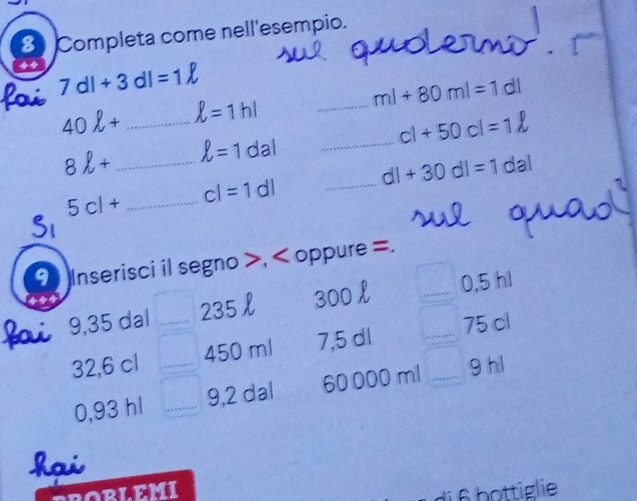 8 Completa come nell'esempio.
sul quaderno!
Fai 7 dl + 3 dl = 1 ℓ
40 ℓ + ______ ℓ = 1 hl ______ ml + 80 ml = 1 dl
8 ℓ + ______ ℓ = 1 dal ______ cl + 50 cl = 1 ℓ
5 cl + ______ cl = 1 dl ______ dl + 30 dl = 1 dal
Sì
sul quad
9 Inserisci il segno >, < oppure =.
Fai 9,35 dal ____ 235 ℓ 300 ℓ ____ 0,5 hl
32,6 cl ____ 450 ml 7,5 dl ____ 75 cl
0,93 hl ____ 9,2 dal 60 000 ml ____ 9 hl
Fai
PROBLEMI
di 6 bottiglie